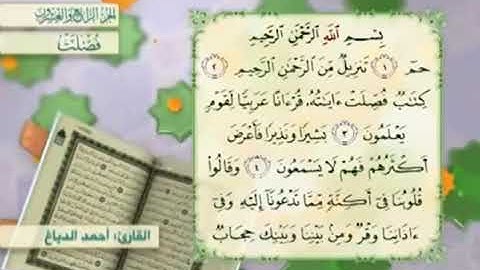 الجزء الرابع والعشرون
فُصِّلَتْ
بِسْمِ اللَّهِ الرَّحْمَٰنِ الرَّحِيمِ
حمٓ ۝١ تَنزِيلٌ مِّنَ الرَّحْمَٰنِ الرَّحِيمِ ۝٢
كِتَٰبٌ فُصِّلَتْ ءَايَٰتُهُۥ قُرْءَانًا عَرَبِيًّا لِّقَوْمٍ
يَعْلَمُونَ ۝٣ بَشِيرًا وَنَذِيرًا فَأَعْرَضَ
أَكْثَرُهُمْ فَهُمْ لَا يَسْمَعُونَ ۝٤ وَقَالُوا۟
قُلُوبُنَا فِىٓ أَكِنَّةٍ مِّمَّا تَدْعُونَآ إِلَيْهِ وَفِىٓ
ءَاذَانِنَا وَقْرٌ وَمِنۢ بَيْنِنَا وَبَيْنِكَ حِجَابٌ
القارئ: أحمد الدباغ